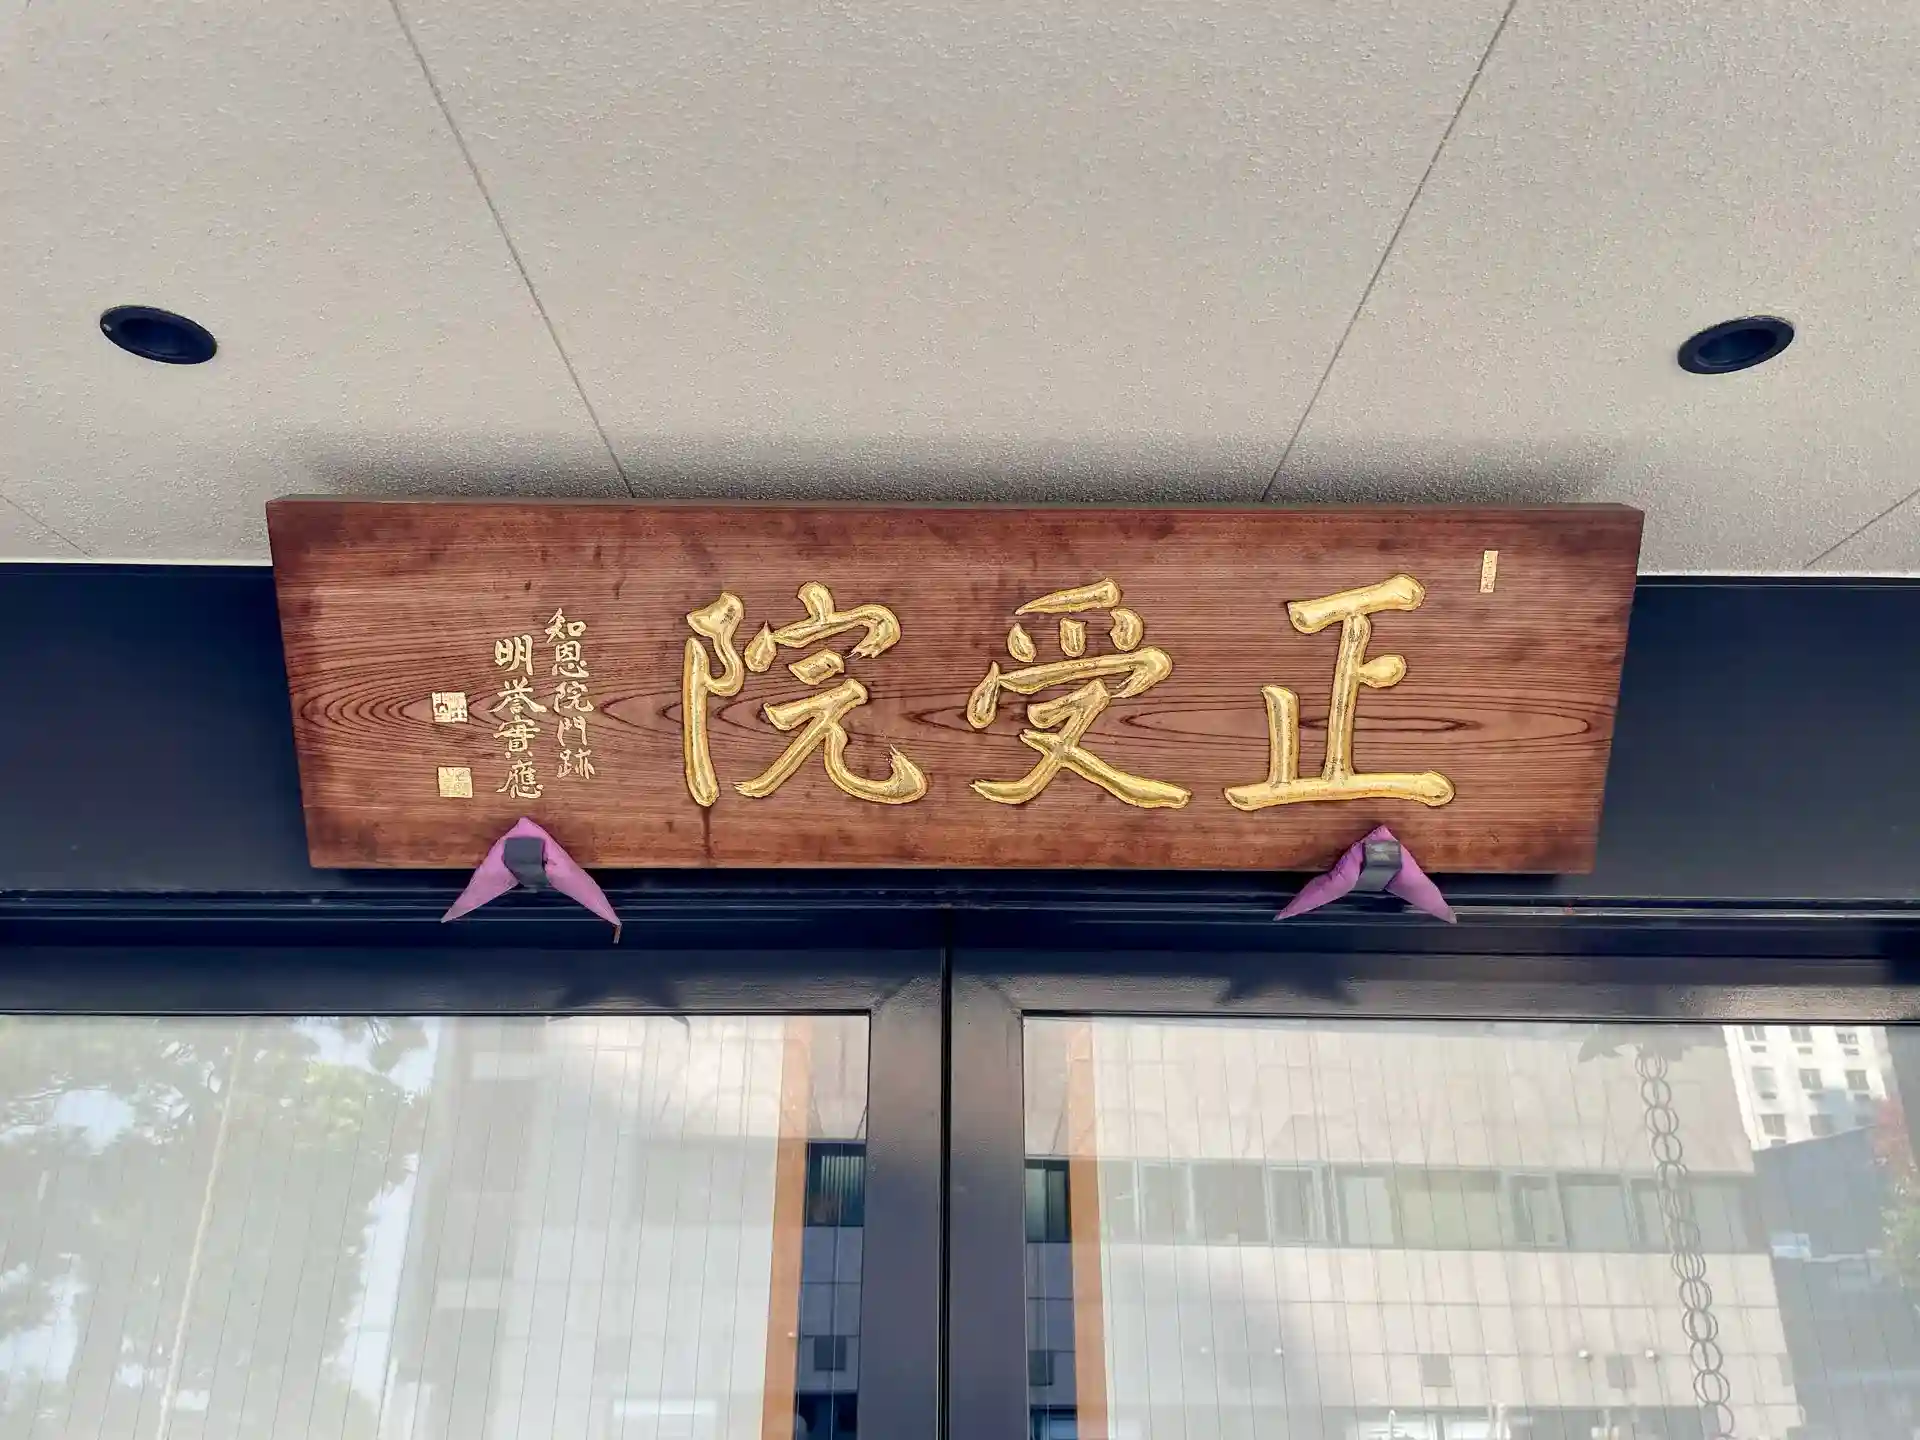 正受院
知恩院門跡
明誉實應